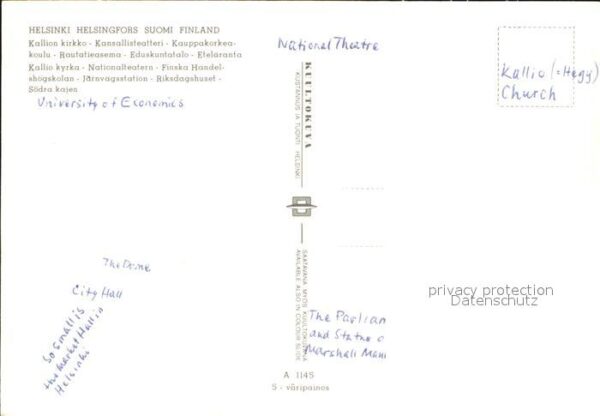 HELSINKI HELSINGFORS SUOMI FINLAND
Kallion kirkko - Kansallisteatteri - Kauppakorkea-
koulu - Rautatieasema - Eduskuntatalo - Eteläranta
Kallio kyrka - Nationalteatern - Finska Handel-
shögskolan - Järnvägsstation - Riksdagshuset -
Södra kajen
University of Economics
National Theatre
Kallio (=Hegy)
Church
KUULTOKUVA
KUSTANNUS JA TUONTI HELSINKI
SAATAVANA MYÖS KUULTOKUVINA
AVAILABLE ALSO IN COLOUR SLIDE
The Dome
City Hall
So small is
the Market Hall in
Helsinki
The Parliam
and Statue o
Marshall Man
privacy protection
Datenschutz
A 1145
5 - väripainos